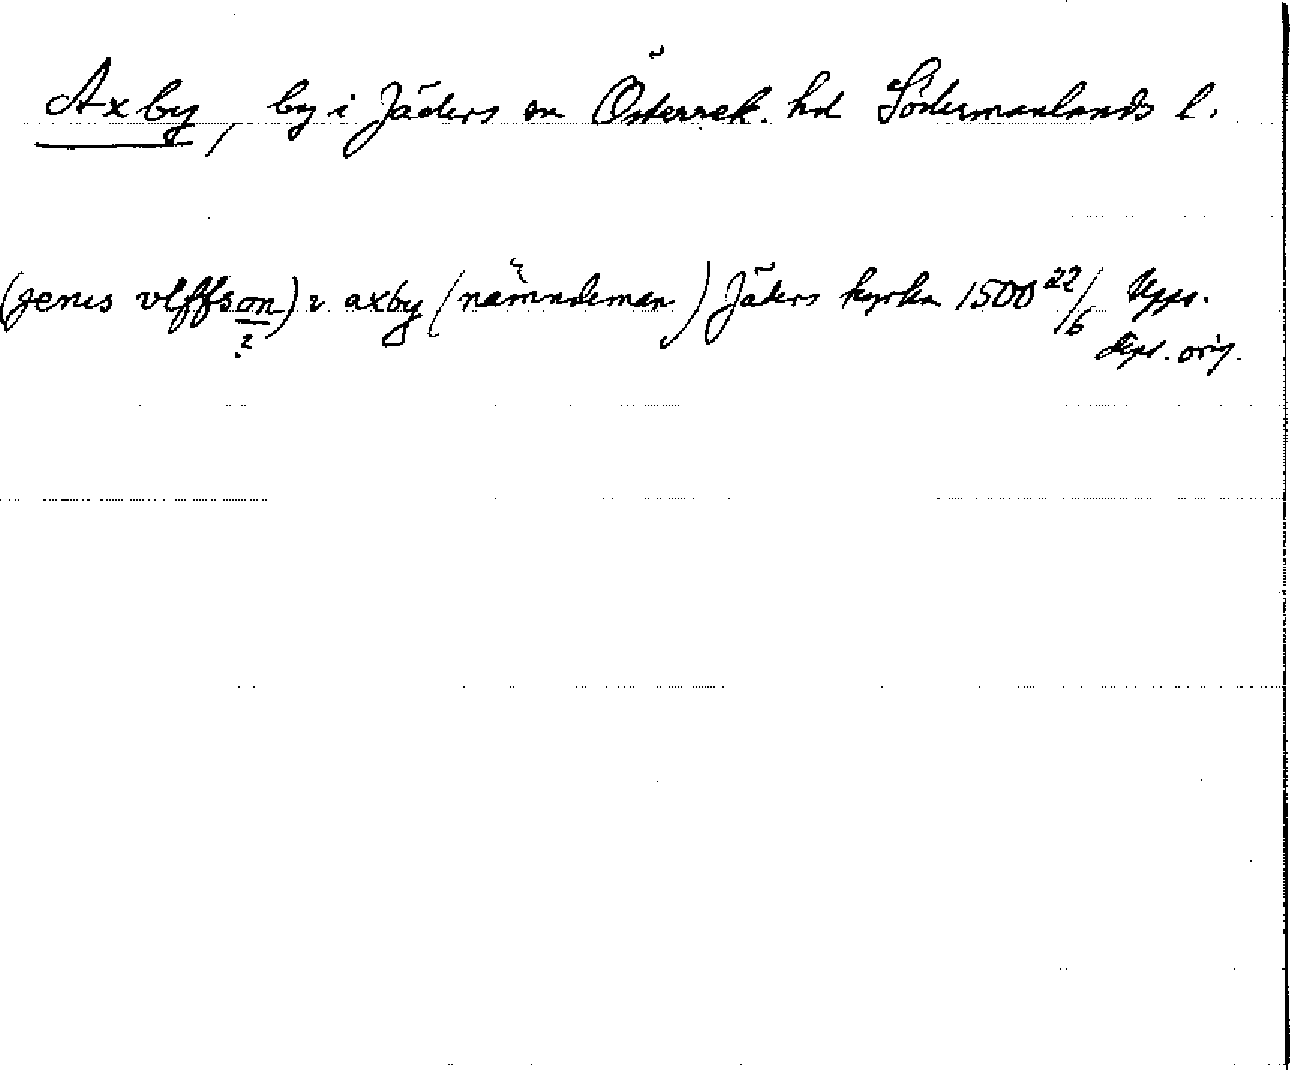 Axby, by i Jäders sn Österrek. hd Södermanlands l.
(jenis vlffson) i axby (nämndeman) Jäders kyrka 1500 22/6 Upps.
depos. orig.